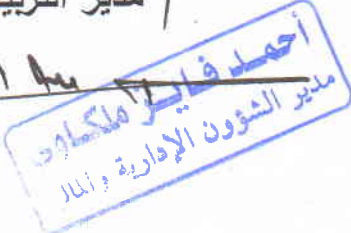 مدير التربية
أحمد فايز ملكاوي
مدير الشؤون الإدارية والمال